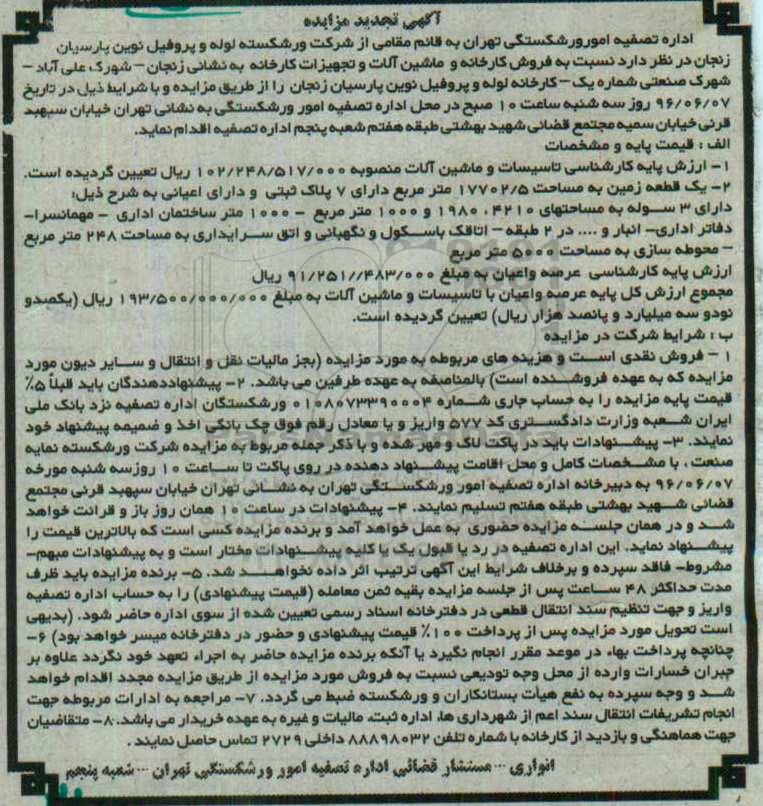 آگهی تجدید مزایده
اداره تصفیه امورورشکستگی تهران به قائم مقامی از شرکت ورشکسته لوله و پروفیل نوین پارسیان
زنجان در نظر دارد نسبت به فروش کارخانه و ماشین آلات و تجهیزات کارخانه به نشانی زنجان – شهرک علی آباد –
شهرک صنعتی شماره یک – کارخانه لوله و پروفیل نوین پارسیان زنجان را از طریق مزایده و با شرایط ذیل در تاریخ
۹۶/۰۶/۰۷ روز سه شنبه ساعت ۱۰ صبح در محل اداره تصفیه امور ورشکستگی به نشانی تهران خیابان سپهبد
قرنی خیابان سمیه مجتمع قضائی شهید بهشتی طبقه هفتم شعبه پنجم اداره تصفیه اقدام نماید.
الف : قیمت پایه و مشخصات
۱- ارزش پایه کارشناسی تاسیسات و ماشین آلات منصوبه ۱۰۲/۲۴۸/۵۱۷/۰۰۰ ریال تعیین گردیده است.
۲- یک قطعه زمین به مساحت ۱۷۷۰۲/۵ متر مربع دارای ۷ پلاک ثبتی و دارای اعیانی به شرح ذیل:
دارای ۳ سوله به مساحتهای ۴۲۱۰، ۱۹۸۰ و ۱۰۰۰ متر مربع – ۱۰۰۰ متر ساختمان اداری – مهمانسرا-
دفاتر اداری- انبار و .... در ۲ طبقه – اتاقک باسکول و نگهبانی و اتق سرایداری به مساحت ۲۴۸ متر مربع
– محوطه سازی به مساحت ۵۰۰۰ متر مربع
ارزش پایه کارشناسی عرصه واعیان به مبلغ ۹۱/۲۵۱//۴۸۳/۰۰۰ ریال
مجموع ارزش کل پایه عرصه واعیان با تاسیسات و ماشین آلات به مبلغ ۱۹۳/۵۰۰/۰۰۰/۰۰۰ ریال (یکصدو
نودو سه میلیارد و پانصد هزار ریال) تعیین گردیده است.
ب : شرایط شرکت در مزایده
۱ – فروش نقدی است و هزینه های مربوطه به مورد مزایده (بجز مالیات نقل و انتقال و سایر دیون مورد
مزایده که به عهده فروشنده است) بالمناصفه به عهده طرفین می باشد. ۲- پیشنهاددهندگان باید قبلاً ۵%
قیمت پایه مزایده را به حساب جاری شماره ۰۱۰۸۰۷۳۳۹۰۰۰۴ ورشکستگان اداره تصفیه نزد بانک ملی
ایران شعبه وزارت دادگستری کد ۵۷۷ واریز و یا معادل رقم فوق چک بانکی اخذ و ضمیمه پیشنهاد خود
نمایند. ۳- پیشنهادات باید در پاکت لاک و مهر شده و با ذکر جمله مربوط به مزایده شرکت ورشکسته نمایه
صنعت ، با مشخصات کامل و محل اقامت پیشنهاد دهنده در روی پاکت تا ساعت ۱۰ روزسه شنبه مورخه
۹۶/۰۶/۰۷ به دبیرخانه اداره تصفیه امور ورشکستگی تهران به نشانی تهران خیابان سپهبد قرنی مجتمع
قضائی شهید بهشتی طبقه هفتم تسلیم نمایند. ۴- پیشنهادات در ساعت ۱۰ همان روز باز و قرائت خواهد
شد و در همان جلسه مزایده حضوری به عمل خواهد آمد و برنده مزایده کسی است که بالاترین قیمت را
پیشنهاد نماید. این اداره تصفیه در رد یا قبول یک یا کلیه پیشنهادات مختار است و به پیشنهادات مبهم-
مشروط- فاقد سپرده و برخلاف شرایط این آگهی ترتیب اثر داده نخواهد شد. ۵- برنده مزایده باید ظرف
مدت حداکثر ۴۸ ساعت پس از جلسه مزایده بقیه ثمن معامله (قیمت پیشنهادی) را به حساب اداره تصفیه
واریز و جهت تنظیم سند انتقال قطعی در دفترخانه اسناد رسمی تعیین شده از سوی اداره حاضر شود. (بدیهی
است تحویل مورد مزایده پس از پرداخت ۱۰۰% قیمت پیشنهادی و حضور در دفترخانه میسر خواهد بود) ۶-
چنانچه پرداخت بهاء در موعد مقرر انجام نگیرد یا آنکه برنده مزایده حاضر به اجراء تعهد خود نگردد علاوه بر
جبران خسارات وارده از محل وجه تودیعی نسبت به فروش مورد مزایده از طریق مزایده مجدد اقدام خواهد
شد و وجه سپرده به نفع هیأت بستانکاران و ورشکسته ضبط می گردد. ۷- مراجعه به ادارات مربوطه جهت
انجام تشریفات انتقال سند اعم از شهرداری ها، اداره ثبت، مالیات و غیره به عهده خریدار می باشد. ۸- متقاضیان
جهت هماهنگی و بازدید از کارخانه با شماره تلفن ۸۸۸۹۸۰۳۲ داخلی ۲۷۲۹ تماس حاصل نمایند .
انواری ... مستشار قضائی اداره تصفیه امور ورشکستگی تهران ... شعبه پنجم